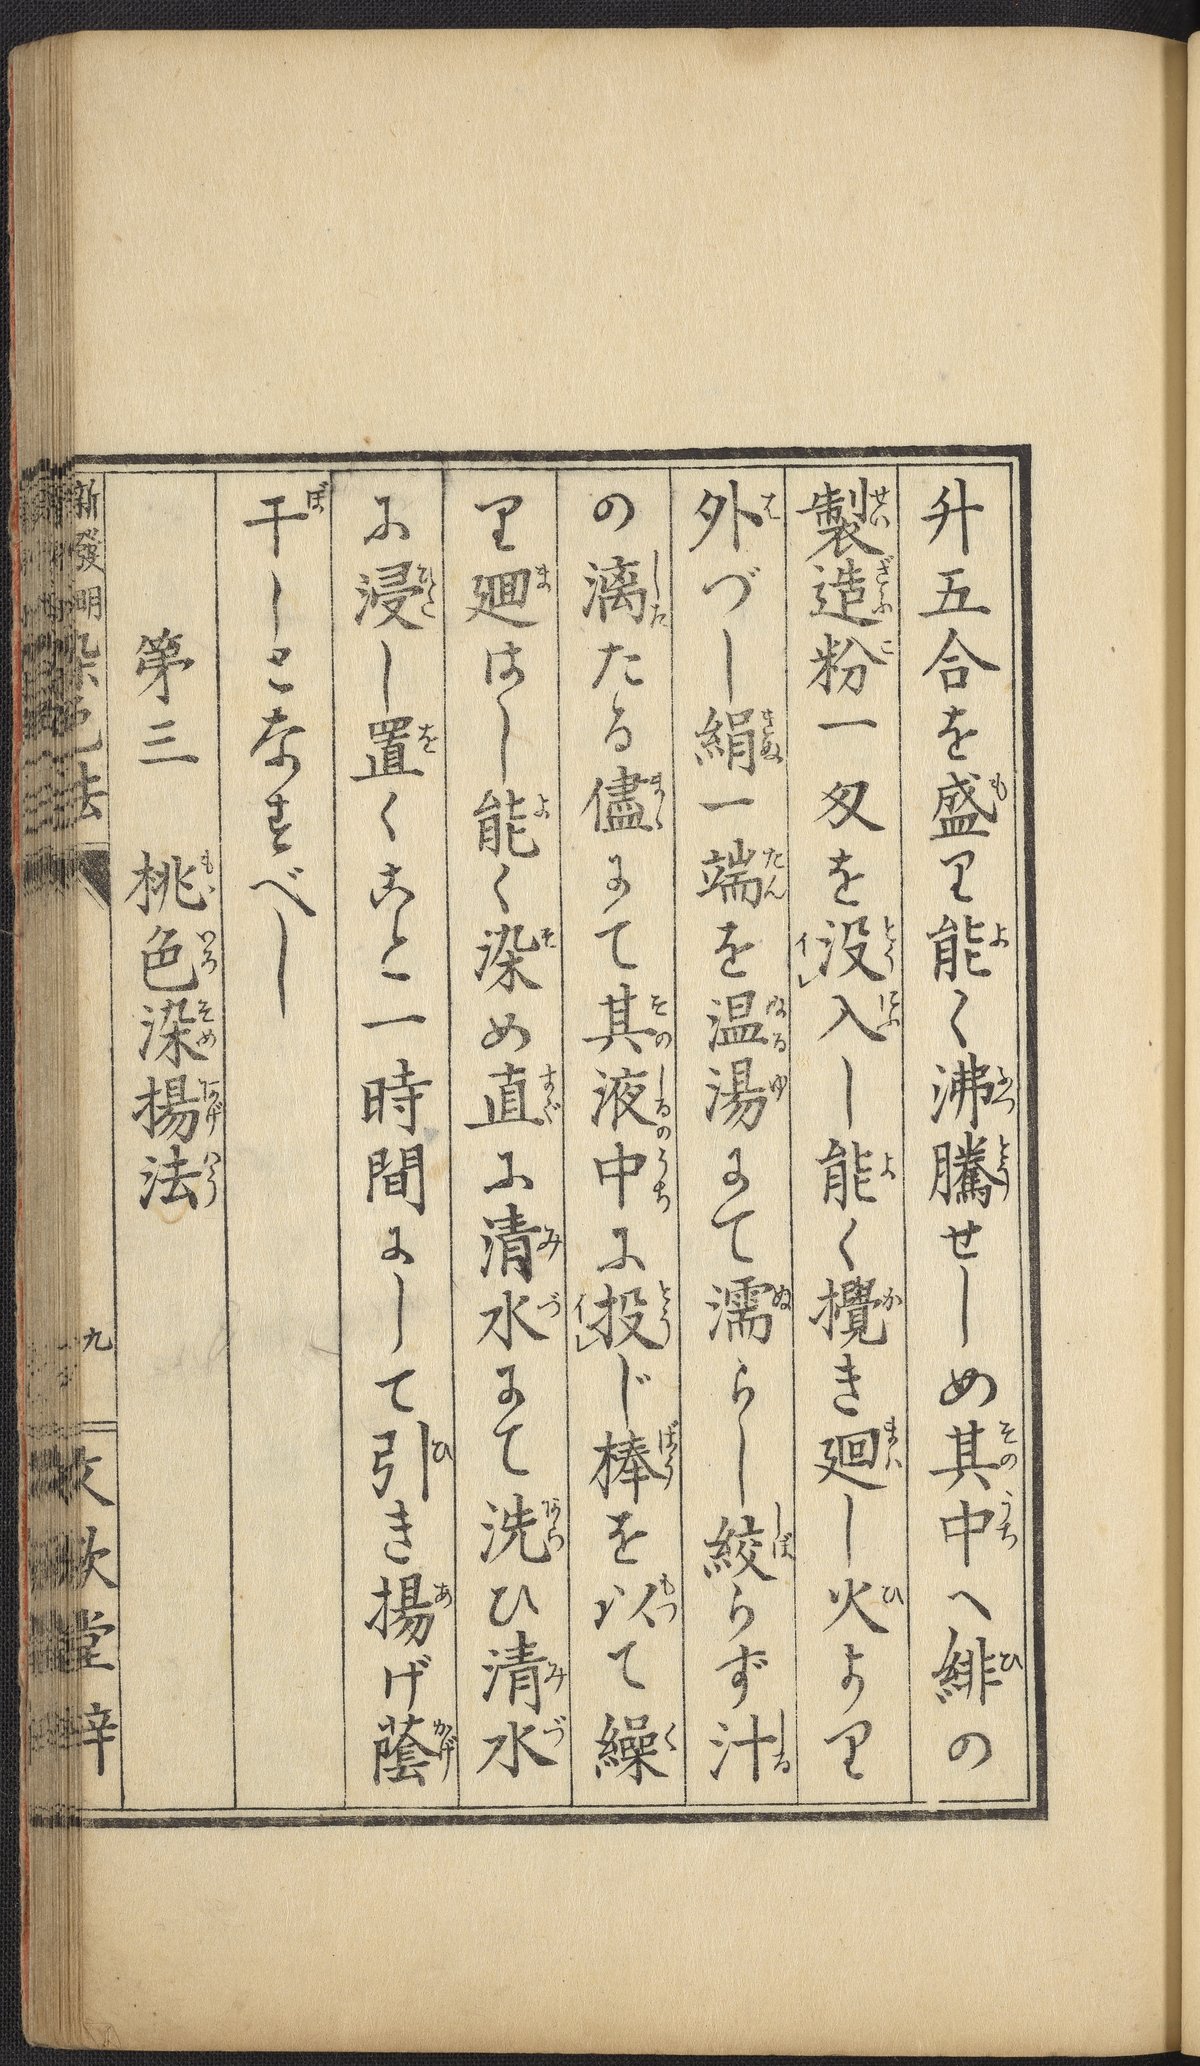 升五合を盛り能く沸騰せしめ其中へ緋の
製造粉一匁を没入し能く攪き廻し火より
外づし絹一端を温湯にて濡らし絞らず汁
の漓たる儘にて其液中に投じ棒を以て繰
り廻はし能く染め直に清水にて洗ひ清水
に浸し置くこと一時間にして引き揚げ蔭
干しとなすべし
第三　桃色染揚法
新發明染色法　九